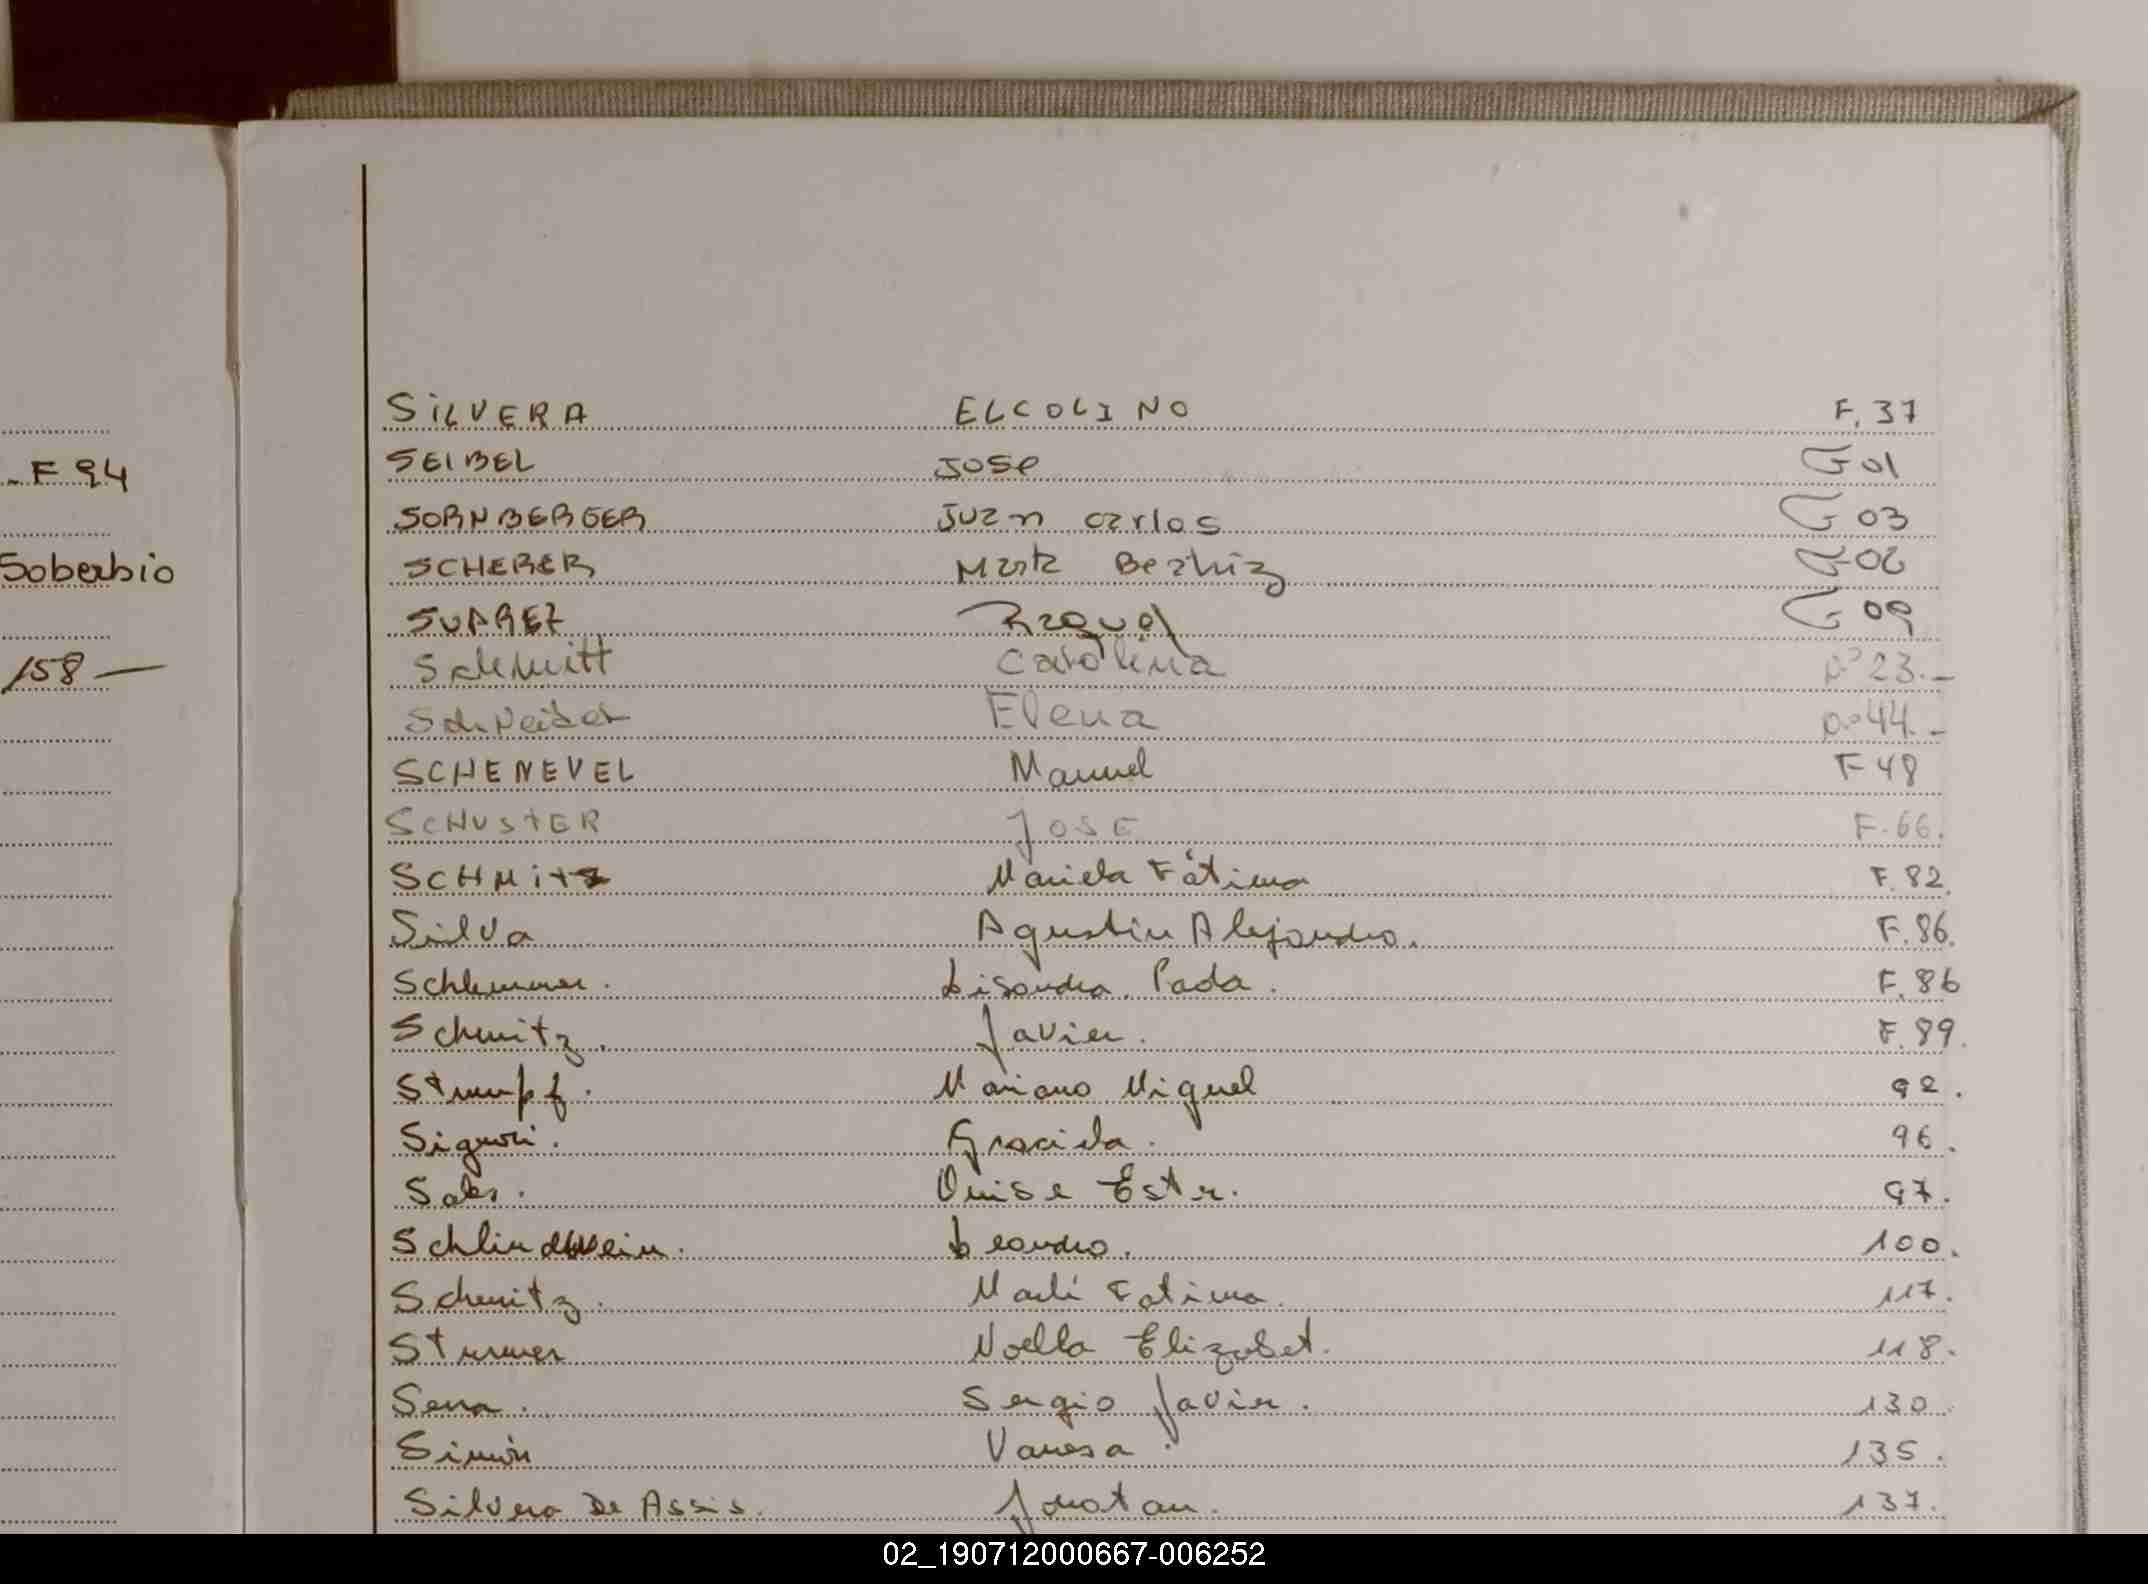 F 94
Soberbio
158 —
SILVERA ELCOLINO F. 37
SEIBEL JOSe F 01
SORNBERGER Juan carlos F 03
SCHERER Mirta Beatriz F 06
SUAREZ Raquel F 09
Schmitt Carolina Nº 23.-
Schneider Elena Nº 44.-
SCHENEVEL Manuel F 48
SCHUSTER JOSE F. 66.
SCHMITZ Mariela Fátima F. 82.
Silva Agustin Alejandro. F. 86.
Schlemmer. Lisandra Paola. F. 86
Schmitz. Javier. F. 89.
Stumpf. Mariano Miguel 92.
Signori. Graciela. 96.
Sales. Ester. 97.
Schlindwein. Leandro. 100.
Schmitz. Marli Fatima. 117.
Sturmer Noelia Elizabet. 118.
Sena. Sergio Javier. 130.
Simón Vanesa. 135.
Silvera De Assis. Jonatan. 137.
02_190712000667-006252